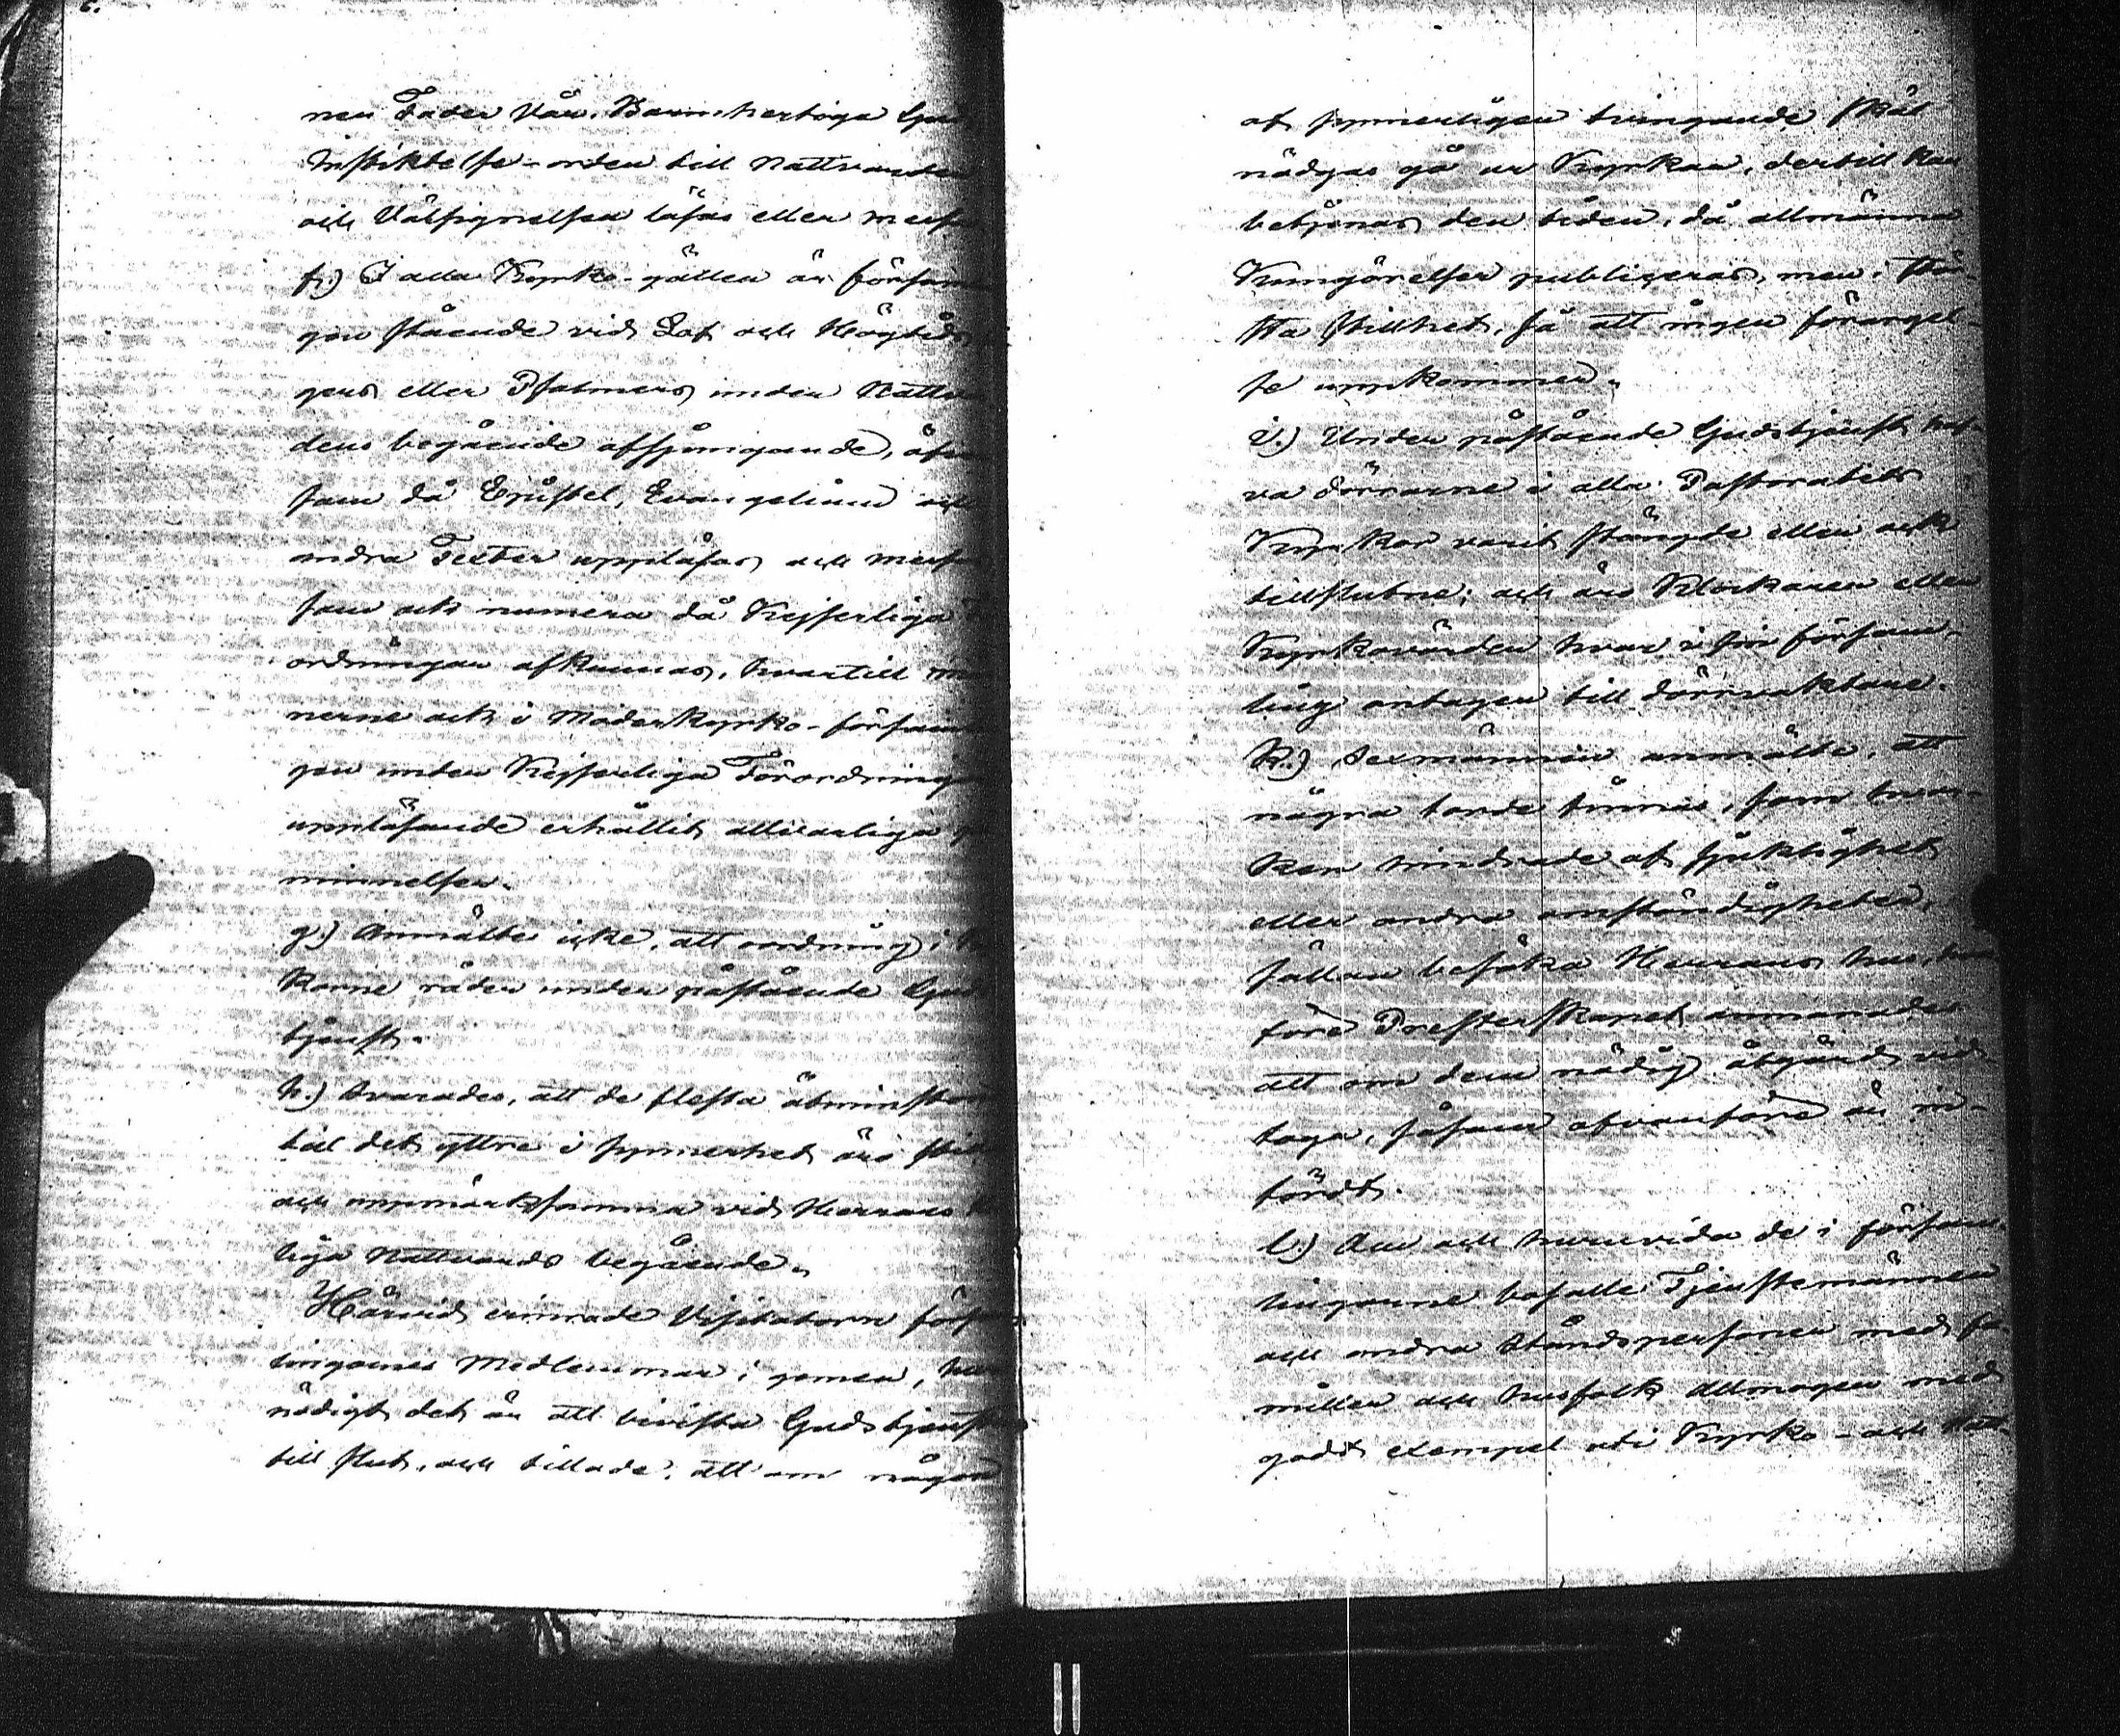 6.
nen Fader Vår, Barmhertige Gud
Instiktelse-orden till Nattvarden
och Välsignelsen läsas eller messa
f.) I alla Kyrko-gällen är församl
gen stående vid Lof och Högtids
gers eller Psalmers under Nattv
dens begående afsjungande, äfven
som då Epistel, Evangelium och
andra Texter uppläsas och messa
som ock numera då Kejserliga
ordningar afkunnas, hvartill
nerne ock i Moderkyrko-försam
gen under Kejserliga Förordninga
uppläsande erhållit allvarliga
minnelser.
g.) Anmälte icke, att oordning i
korne råder under påstående Guds
tjenst.
h.) Svarades, att de flesta åtminstone
till det yttre i synnerhet äro stil
och uppmärksamma vid Herrans
liga Nattvards begående.
Härvid erinrade Visitatorn förs
lingarnes Medlemmar i gemen, huru
nödigt det är att bivista Gudstjensten
till slut, och tillade, att om någon
af synnerligen tvingande skäl
nödgas gå ur Kyrkan, dertill kan
betjenas den tiden, då allmänna
Kungörelser publiceras, men i stör-
sta stillhet, så att ingen förargel-
se uppkommer.
i.) Under påstående Gudstjenst haf-
va dörrarne i alla Pastoratets
Kyrkor varit stängde eller ock
tillslutne; och äro Klockaren eller
Kyrkovärden hvar i sin försam-
ling antagen till dörrvaktare.
k.) Sexmännen anmälte, att
några torde finnas, som hvar-
ken hindrade af sjuklighet
eller andra omständigheter,
sällan besöka Herrans hus, hvar
före Presterskapet anmanades
att om dem nödig åtgärd vid-
taga, såsom ofvanföre är in-
fördt.
l.) Om och huruvida de i försam-
lingarne bosatte Tjenstemännen
och andra Ståndspersoner med fa-
miller och husfolk Allmogen med
godt exempel uti Kyrko- och Natt-